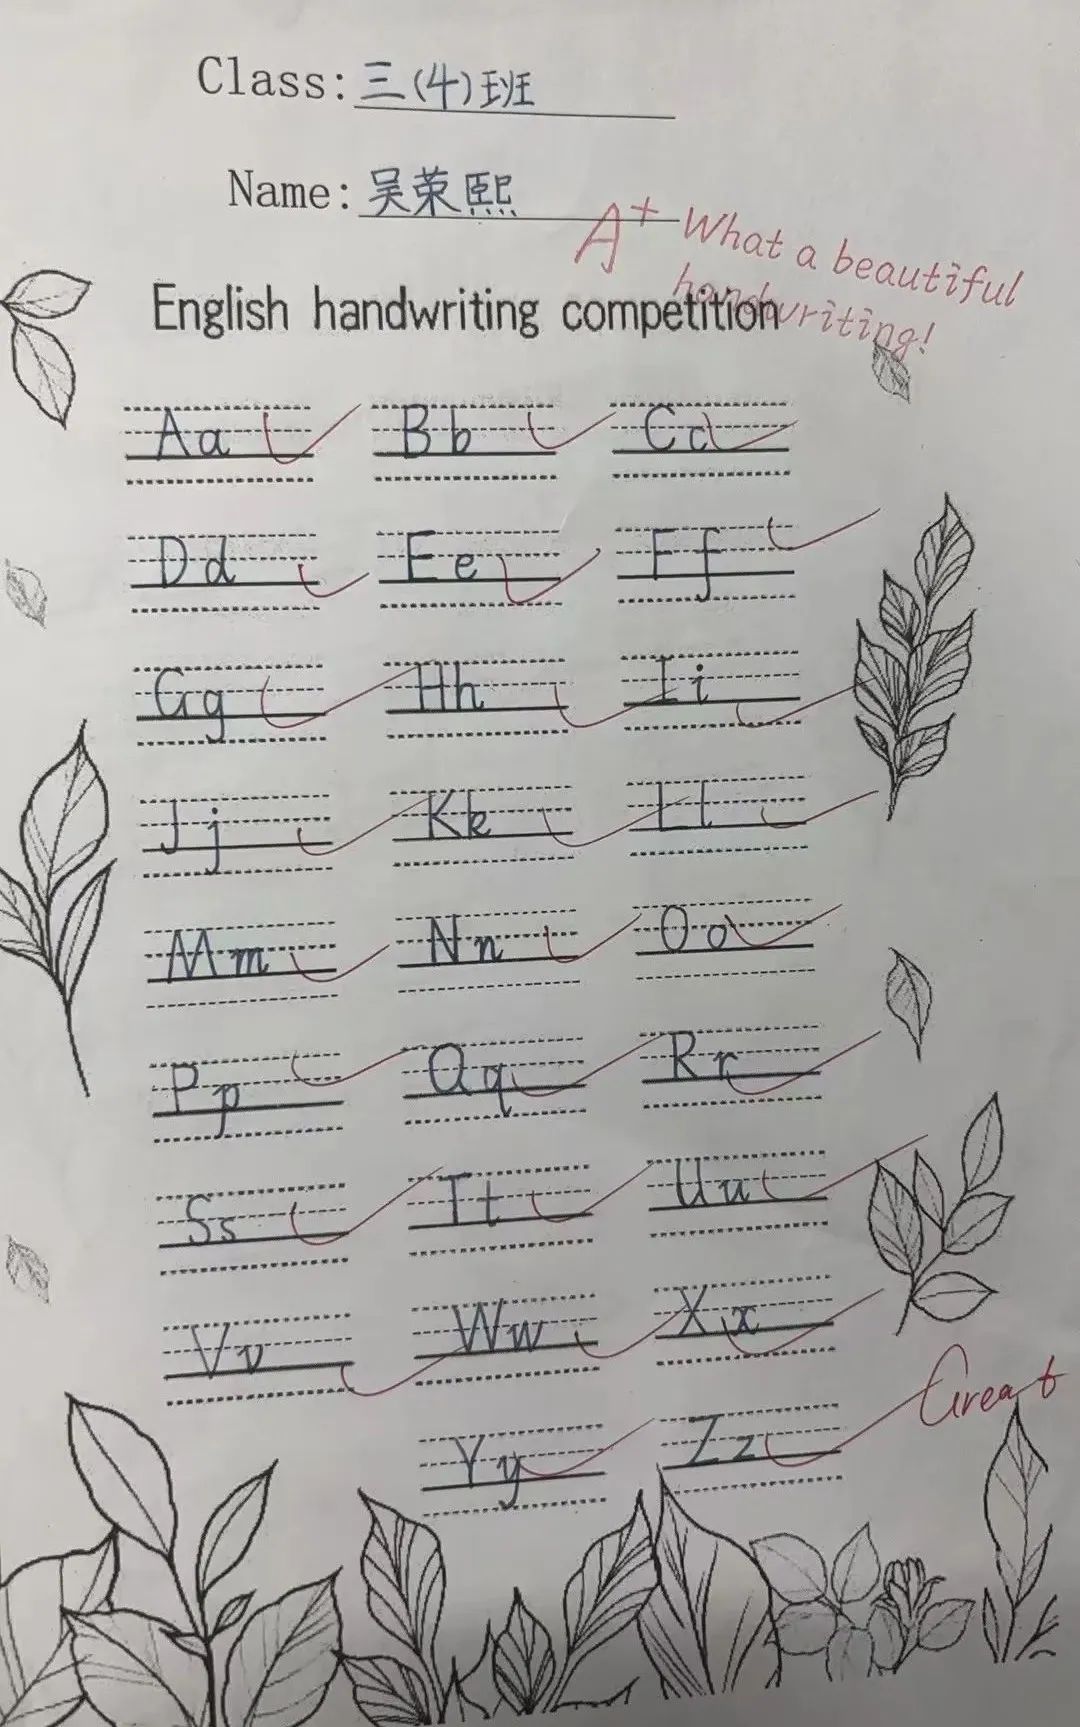 Class: 三(4)班
Name: 吴荣熙
A+ What a beautiful
handwriting!
English handwriting competition
Aa Bb Cc
Dd Ee Ff
Gg Hh Ii
Jj Kk Ll
Mm Nn Oo
Pp Qq Rr
Ss Tt Uu
Vv Ww Xx
Great
Yy Zz